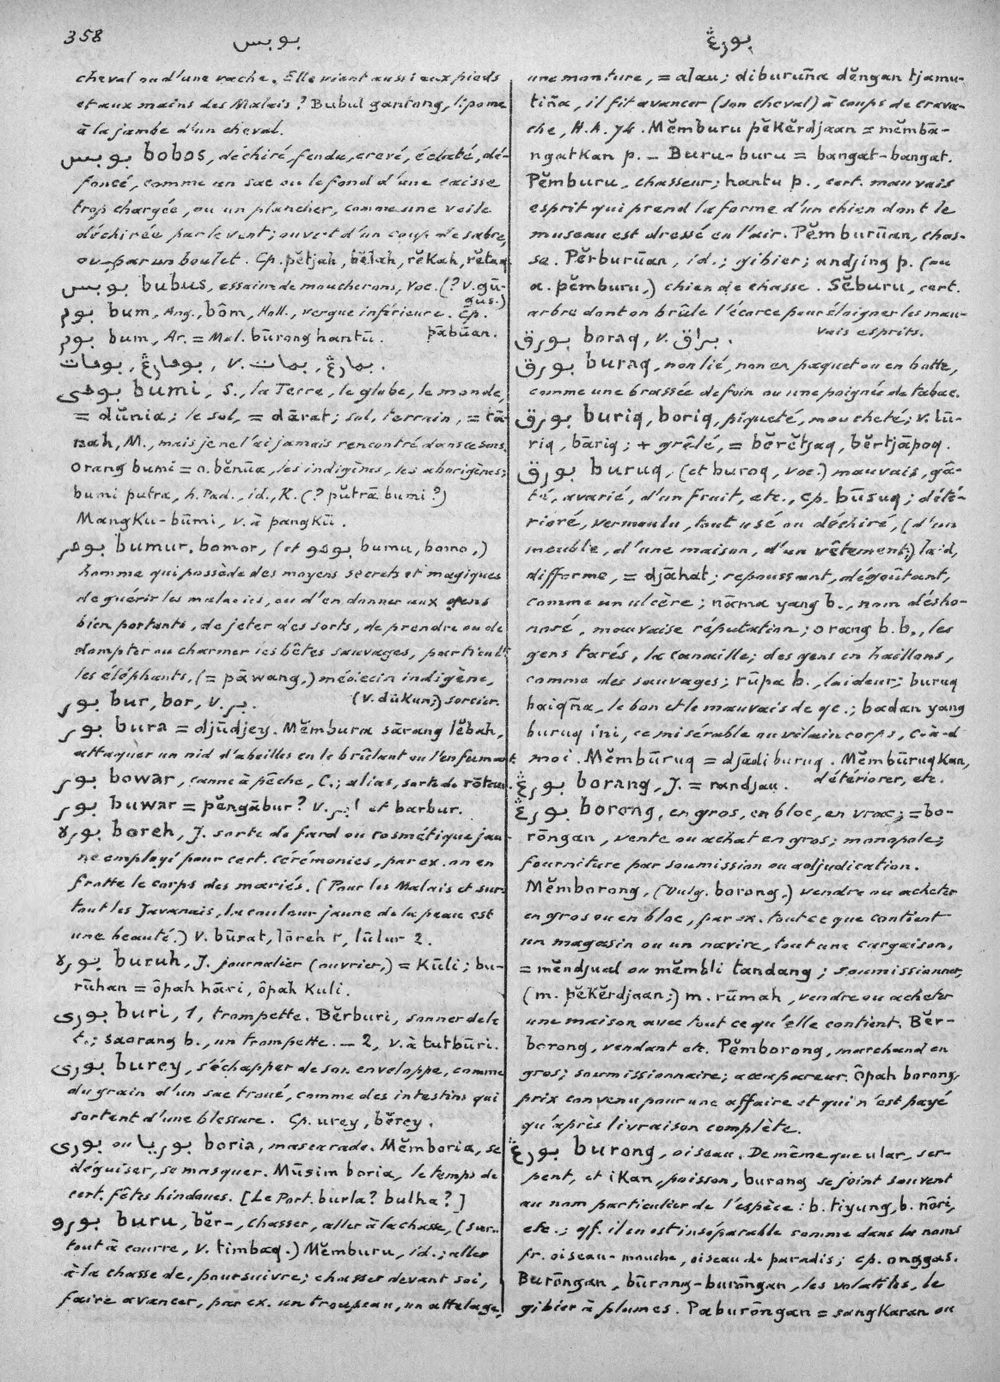 358
بوبس
بورڠ
cheval ou d'une vache. Elle vient aussi aux pieds
et aux mains des Malais? Bubul gantong, lipome
à la jambe d'un cheval.
بوبس bobos, déchiré, fendu, crevé, éclaté, dé-
foncé, comme un sac ou le fond d'une caisse
trop chargée, ou un plancher, comme une voile
déchirée par le vent; ouvert d'un coup de sabre,
ou par un boulet. Cp. pĕtjah, bĕlah, rĕkah, rĕtaq
بوبس bubus, essaim de moucherons, voc. (? v. gū-
gus.)
بوم bum, Ang., bôm, Holl., vergue inférieure. Cp.
pābūan.
بوم bum, Ar. = Mal. būrong hantū.
بوفات, بوفارڠ, v. بمات, بمارڠ.
بومي bumi, S., la Terre, le globe, le monde,
= dŭnia; le sol, = dārat; sol, terrain, = tā-
nah, M., mais je ne l'ai jamais rencontré dans ce sens.
Orang bumi = o. bĕnūa, les indigènes, les aborigènes;
bumi putra, h. Pad., id., K. (? pŭtrā bumi?)
Mangku-būmi, v. à pangkū.
بومر bumur, bomor, (et بومو bumu, bomo,)
homme qui possède des moyens secrets et magiques
de guérir les malades, ou d'en donner aux gens
bien portants, de jeter des sorts, de prendre ou de
dompter ou charmer les bêtes sauvages, particult
les éléphants, (= pāwang,) médecin indigène,
(v. dūkun;) sorcier.
بور bur, bor, v. بر.
بور bura = djūdjey. Mĕmbura sārang lĕbah,
attaquer un nid d'abeilles en le brûlant ou l'enfumant.
بور bowar, canne à pêche, C.; alias, sorte de rōtan.
بور buwar = pĕngābur? v. ابر et barbur.
بوره boreh, J. sorte de fard ou cosmétique jau-
ne employé pour cert. cérémonies, par ex. on en
frotte le corps des mariés. (Pour les Malais et sur-
tout les Javanais, la couleur jaune de la peau est
une beauté.) V. būrat, lōreh r, lūlur 2.
بوره buruh, J. journalier (ouvrier,) = Kūli; bu-
rūhan = ôpah hāri, ôpah kuli.
بوري buri, 1, trompette. Bĕrburi, sonner de la
t.; saorang b., un trompette. — 2, v. à tutbūri.
بوري burey, s'échapper de son enveloppe, comme
du grain d'un sac troué, comme des intestins qui
sortent d'une blessure. Cp. urey, bĕrey.
بوري ou بوريا boria, mascarade. Mĕmboria, se
déguiser, se masquer. Mūsim boria, le temps de
cert. fêtes hindoues. [Le Port. burla? bulha?]
بورو buru, bĕr-, chasser, aller à la chasse, (sur-
tout à courre, v. timbaq.) Mĕmburu, id.; aller
à la chasse de, poursuivre; chasser devant soi,
faire avancer, par ex. un troupeau, un attelage,
une monture, = alau; diburuña dĕngan tjamu-
tiña, il fit avancer (son cheval) à coups de crava-
che, H.A. 74. Mĕmburu pĕkĕrdjaan = mĕmbā-
ngatkan p. — Buru-buru = bangat-bangat.
Pĕmburu, chasseur; hantu p., cert. mauvais
esprit qui prend la forme d'un chien dont le
museau est dressé en l'air. Pĕmburūan, chas-
se. Pĕrburūan, id.; gibier; andjing p. (ou
a. pĕmburu,) chien de chasse. Sĕburu, cert.
arbre dont on brûle l'écorce pour éloigner les mau-
vais esprits.
بورق boraq, v. براق.
بورق buraq, non lié, non en paquet ou en botte,
comme une brassée de foin ou une poignée de tabac.
بورق buriq, boriq, piqueté, moucheté; v. lū-
riq, bāriq; + grêlé, = bĕrĕtjaq, bĕrtjāpoq.
بورق buruq, (et buroq, voc.) mauvais, gâ-
té, avarié, d'un fruit, etc., cp. būsuq; dété-
rioré, vermoulu, tout usé ou déchiré, (d'un
meuble, d'une maison, d'un vêtement;) laid,
difforme, = djāhat; repoussant, dégoûtant,
comme un ulcère; nāma yang b., nom désho-
noré, mauvaise réputation; orang b. b., les
gens tarés, la canaille; des gens en haillons,
comme des sauvages; rūpa b., laideur; buruq
baiqña, le bon et le mauvais de qc.; badan yang
buruq ini, ce misérable ou vilain corps, c-à-d
moi. Mĕmbūruq = djādi buruq. Mĕmbūruqkan,
détériorer, etc.
بورڠ borang, J. = randjau.
بورڠ borong, en gros, en bloc, en vrac; = bo-
rōngan, vente ou achat en gros; monopole;
fourniture par soumission ou adjudication.
Mĕmborong, (vulg. borong,) vendre ou acheter
en gros ou en bloc, par ex. tout ce que contient
un magasin ou un navire, tout une cargaison,
= mĕndjual ou mĕmbli tandang; soumissionner,
(m. pĕkĕrdjaan;) m. rūmah, vendre ou acheter
une maison avec tout ce qu'elle contient. Bĕr-
borong, vendant etc. Pĕmborong, marchand en
gros; soumissionnaire; accapareur. Ôpah borong,
prix convenu pour une affaire et qui n'est payé
qu'après livraison complète.
بورڠ burong, oiseau. De même que ular, ser-
pent, et ikan, poisson, burong se joint souvent
au nom particulier de l'espèce: b. tiyung, b. nōri,
etc.; qf. il en est inséparable comme dans les noms
fr. oiseau-mouche, oiseau de paradis; cp. onggas.
Burōngan, būrong-burōngan, les volatils, le
gibier à plumes. Paburōngan = sangkaran ou